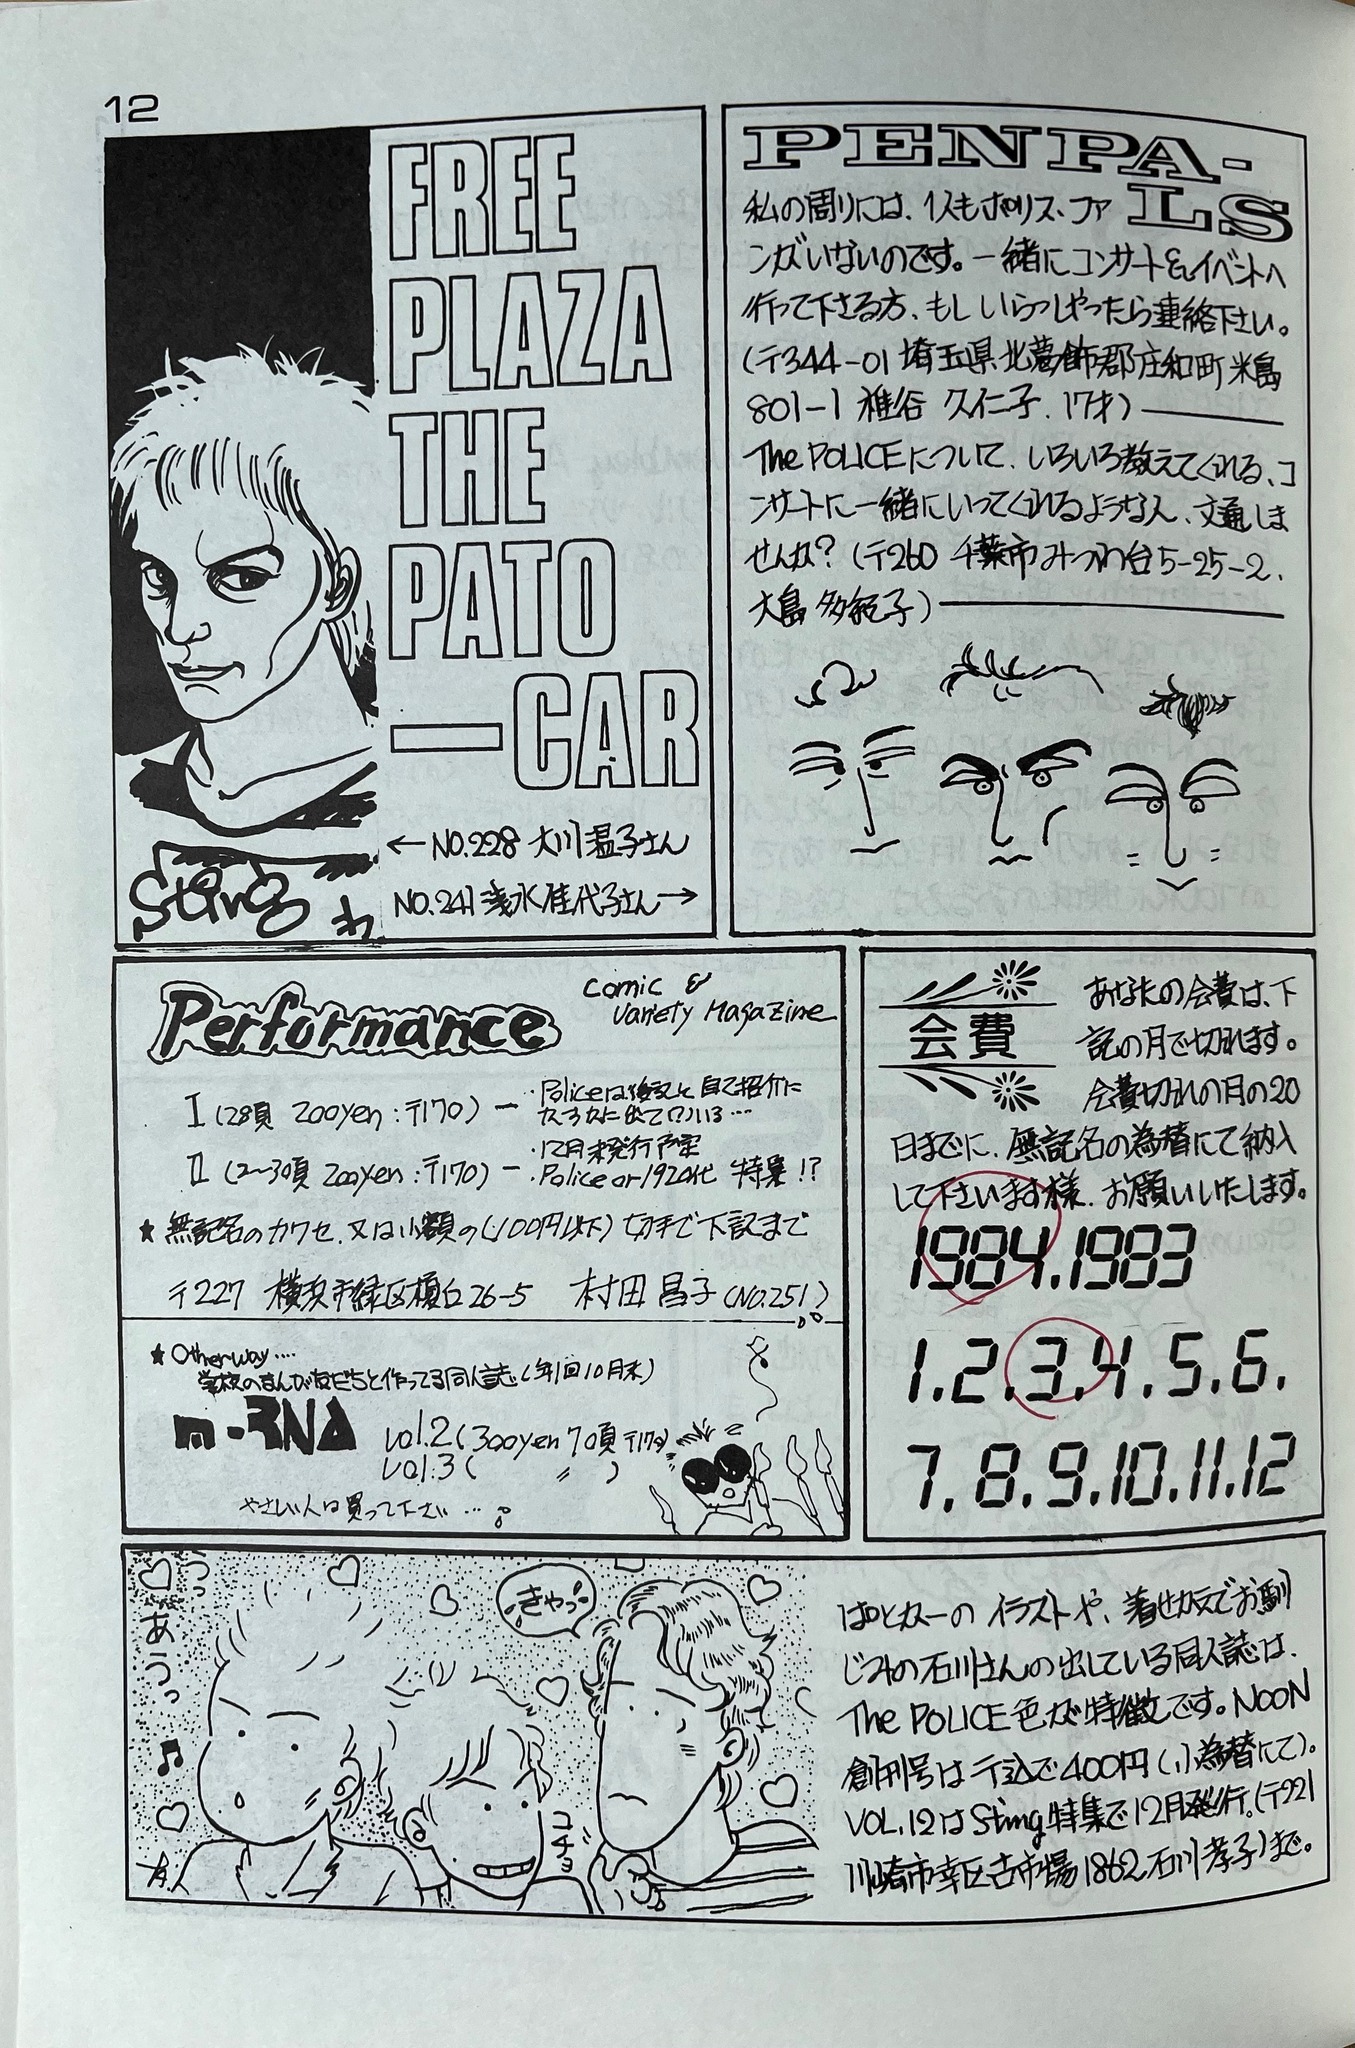 12
FREE
PLAZA
THE
PATO
—CAR
←NO.228 大川温子さん
NO.241 浅水佳代子さん→
Sting
PENPA-
LS
私の周りには、1人もポリス・ファ
ンがいないのです。一緒にコンサート&イベントへ
行って下さる方、もしいらっしゃったら連絡下さい。
(〒344-01 埼玉県北葛飾郡庄和町米島
801-1 雅谷 久仁子. 17才)
The POLICEについて、いろいろ教えてくれる、コ
ンサートに一緒にいってくれるような人、文通しま
せんか? (〒260 千葉市みつわ台5-25-2、
大島 多紀子)
Performance
comic &
Variety Magazine
I (28頁 200yen:〒170) — ・Policeは後記と自己紹介に
たろかに出て
・12月末発行予定
II (2〜30頁 200yen:〒170) — ・Police or 1920代 特集!?
★無記名のカワセ、又は小額の(100円以下)切手で下記まで
〒227 横浜市緑区榎台26-5 村田 昌子(NO.251)
★Otherway....
学校のまんが友だちと作ってる同人誌(年1回10月末)
m-RNA
vol.2 (300yen 70頁 〒170)
vol.3 ( 〃 )
やさしい人は買って下さい…
会費
あなたの会費は、下
記の月で切れます。
会費切れの月の20
日までに、無記名の為替にて納入
して下さいます様、お願いいたします。
1984.1983
1.2.3.4.5.6.
7.8.9.10.11.12
あうっ
♫
きゃっ
コチョ
ぱとかーの イラストや、着せかえでお馴
じみの石川さんの出している同人誌は、
The POLICE色が特徴です。NOON
創刊号は〒込で400円(小為替にて)。
VOL.12はSting特集で12月発行。(〒221
川崎市幸区古市場1862 石川孝子)まで。